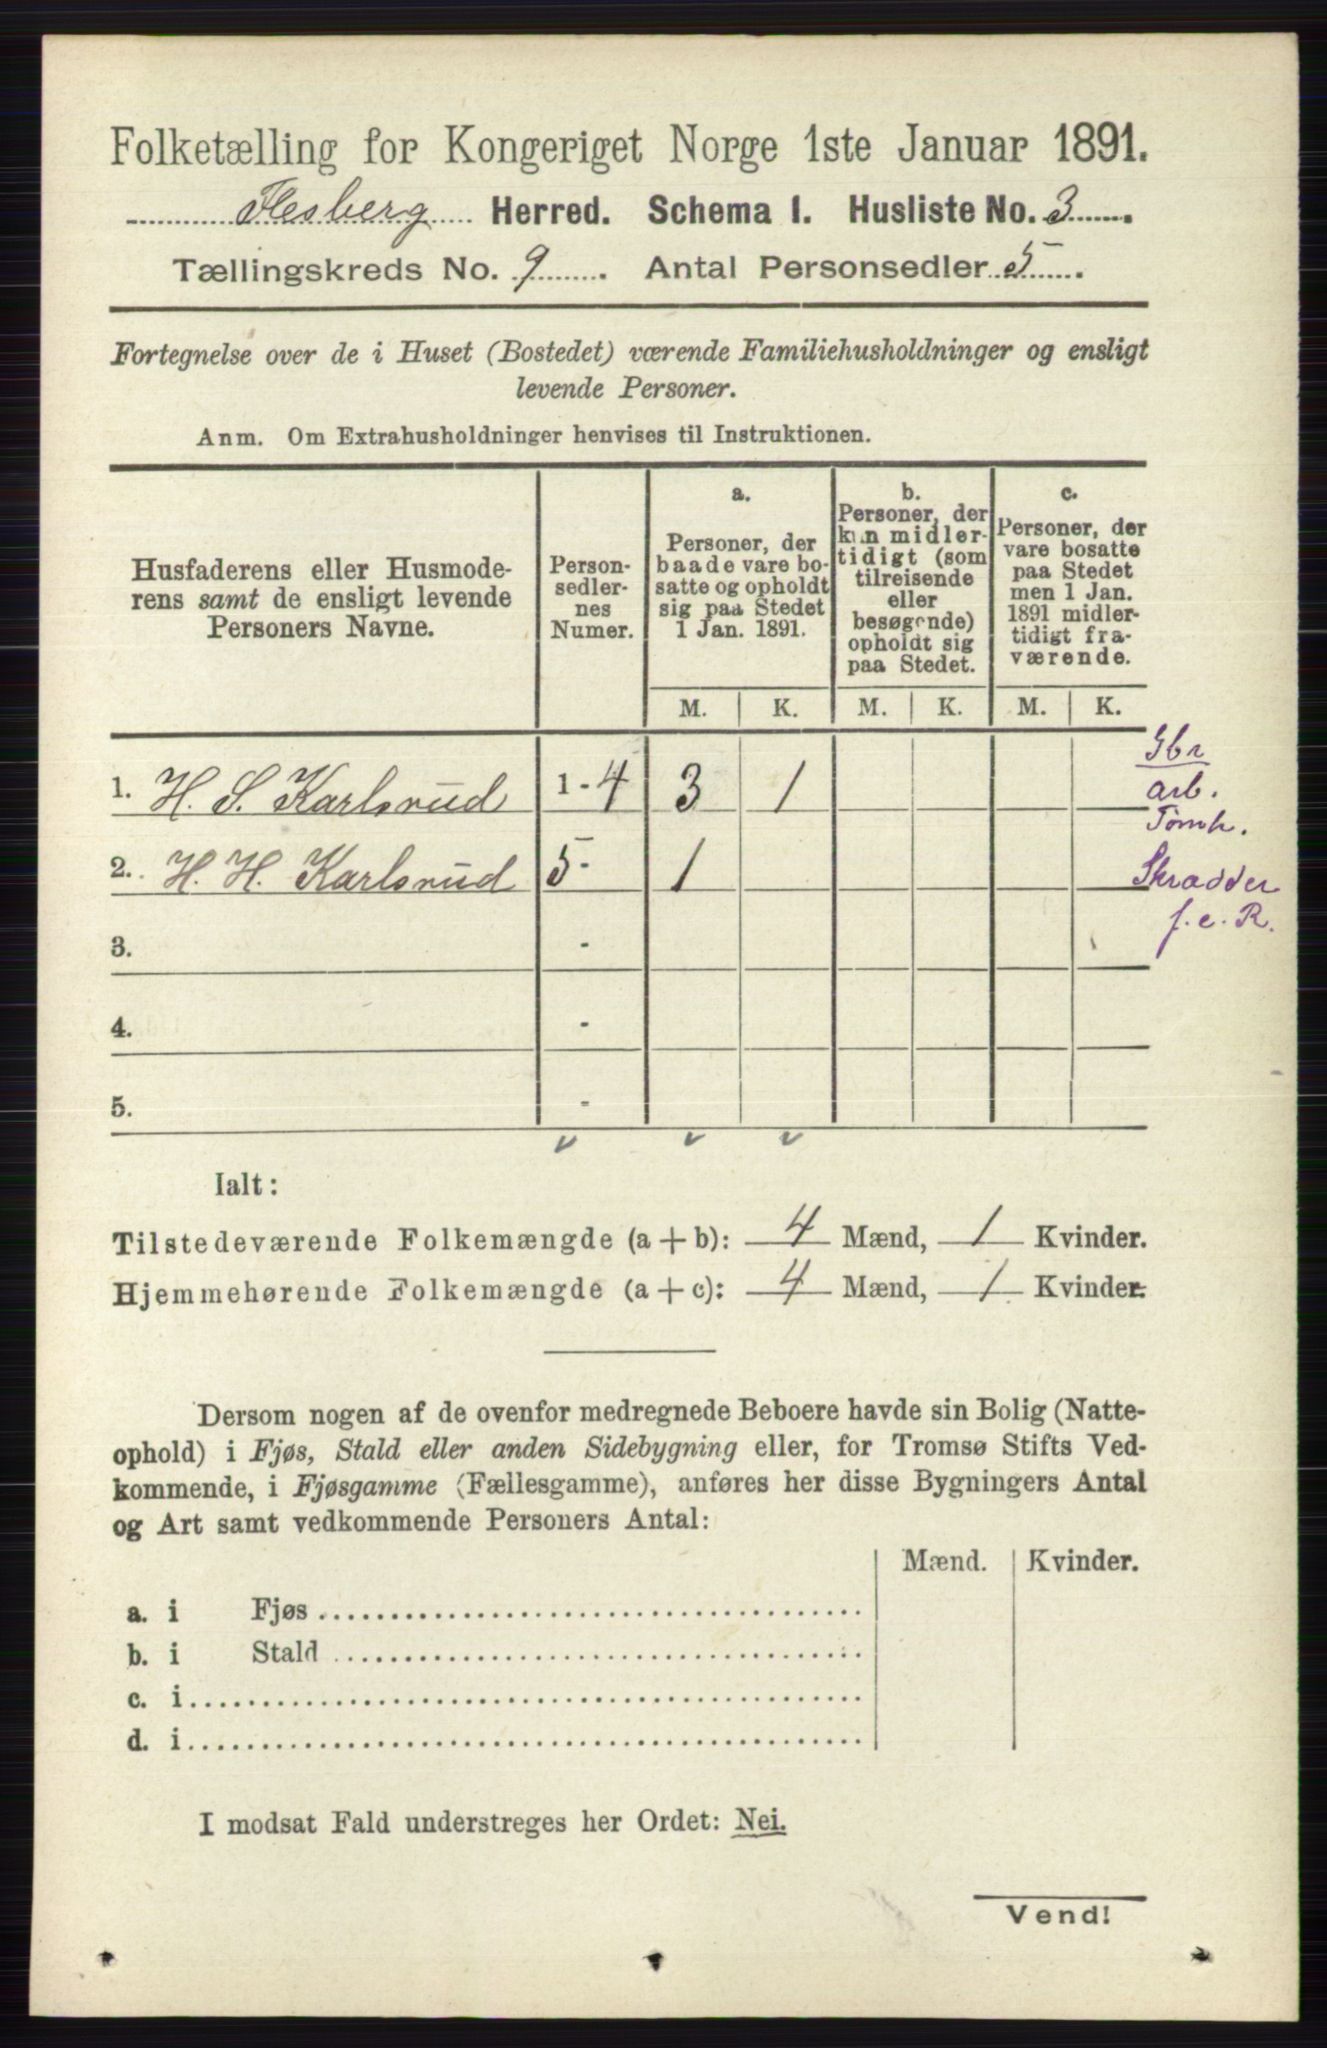 Folketælling for Kongeriget Norge 1ste Januar 1891.
Flesberg Herred. Schema I. Husliste No. 3.
Tællingskreds No. 9. Antal Personsedler 5.
Fortegnelse over de i Huset (Bostedet) værende Familiehusholdninger og ensligt
levende Personer.
Anm. Om Extrahusholdninger henvises til Instruktionen.
Husfaderens eller Husmode-
rens samt de ensligt levende
Personers Navne.
Person-
sedler-
nes
Numer.
a.
Personer, der
baade vare bo-
satte og opholdt
sig paa Stedet
1 Jan. 1891.
b.
Personer, der
kun midler-
tidigt (som
tilreisende
eller
besøgende)
opholdt sig
paa Stedet.
c.
Personer, der
vare bosatte
paa Stedet
men 1 Jan.
1891 midler-
tidigt fra-
værende.
M. K. M. K. M. K.
1. H. S. Karlsrud 1 - 4 3 1
Gbr
arb.
Tømh.
2. H. H. Karlsrud 5 - 1
Skradder
f. e. R.
3. -
4. -
5. -
Ialt:
Tilstedeværende Folkemængde (a + b): 4 Mænd, 1 Kvinder.
Hjemmehørende Folkemængde (a + c): 4 Mænd, 1 Kvinder.
Dersom nogen af de ovenfor medregnede Beboere havde sin Bolig (Natte-
ophold) i Fjøs, Stald eller anden Sidebygning eller, for Tromsø Stifts Ved-
kommende, i Fjøsgamme (Fællesgamme), anføres her disse Bygningers Antal
og Art samt vedkommende Personers Antal:
Mænd. Kvinder.
a. i Fjøs
b. i Stald
c. i
d. i
I modsat Fald understreges her Ordet: Nei.
Vend!